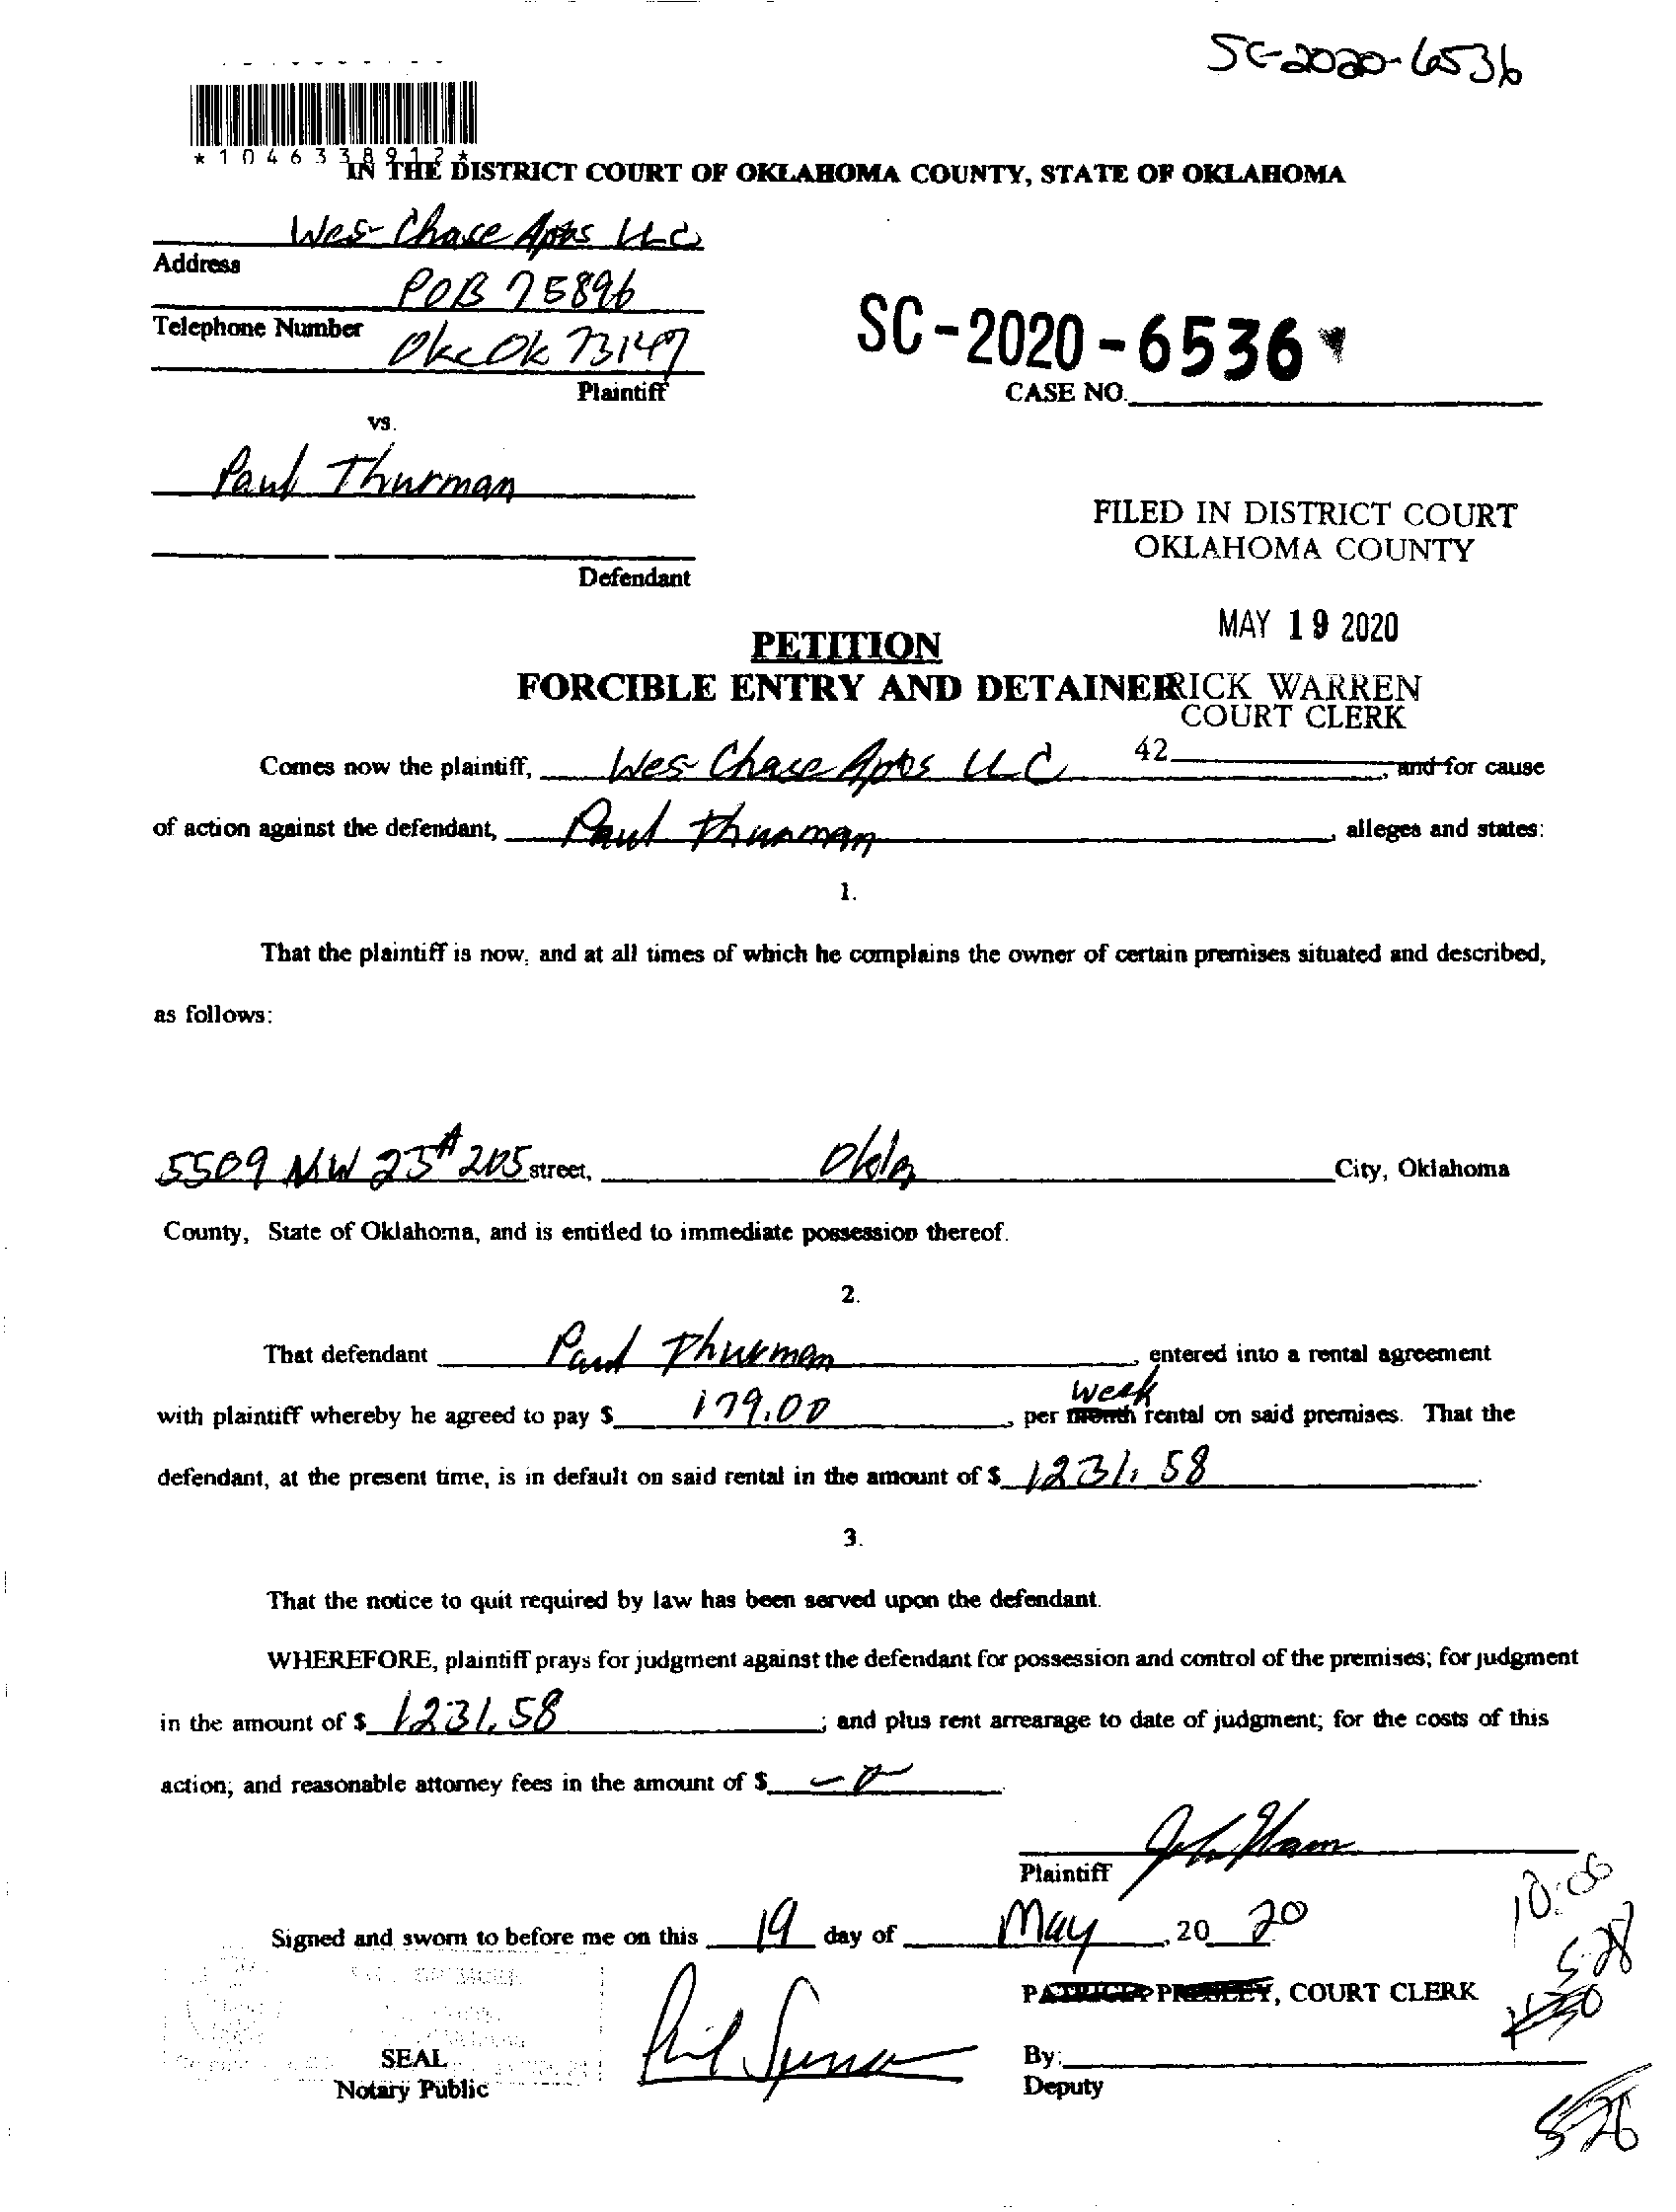 SC-2020-6536
*1046338912*
IN THE DISTRICT COURT OF OKLAHOMA COUNTY, STATE OF OKLAHOMA
Wes Chase Apts LLC
Address
POB 75896
Telephone Number
Okc Ok 73147
Plaintiff
SC-2020-6536
CASE NO.
vs.
Paul Thurman
Defendant
FILED IN DISTRICT COURT
OKLAHOMA COUNTY
MAY 19 2020
PETITION
FORCIBLE ENTRY AND DETAINER
RICK WARREN
COURT CLERK
42
Comes now the plaintiff, Wes Chase Apts LLC, and for cause
of action against the defendant, Paul Thurman, alleges and states:
1.
That the plaintiff is now, and at all times of which he complains the owner of certain premises situated and described,
as follows:
5509 NW 23 # 205 street, Okla City, Oklahoma
County, State of Oklahoma, and is entitled to immediate possession thereof.
2.
That defendant Paul Thurman, entered into a rental agreement
with plaintiff whereby he agreed to pay $ 179.00, per month week rental on said premises. That the
defendant, at the present time, is in default on said rental in the amount of $ 1231.58.
3.
That the notice to quit required by law has been served upon the defendant.
WHEREFORE, plaintiff prays for judgment against the defendant for possession and control of the premises; for judgment
in the amount of $ 1231.58; and plus rent arrearage to date of judgment; for the costs of this
action; and reasonable attorney fees in the amount of $ -0-.
Plaintiff
10:00
Signed and sworn to before me on this 19 day of May, 20 20
5-28
PATRICIA PRESLEY, COURT CLERK
SEAL
By:
Notary Public
Deputy
528